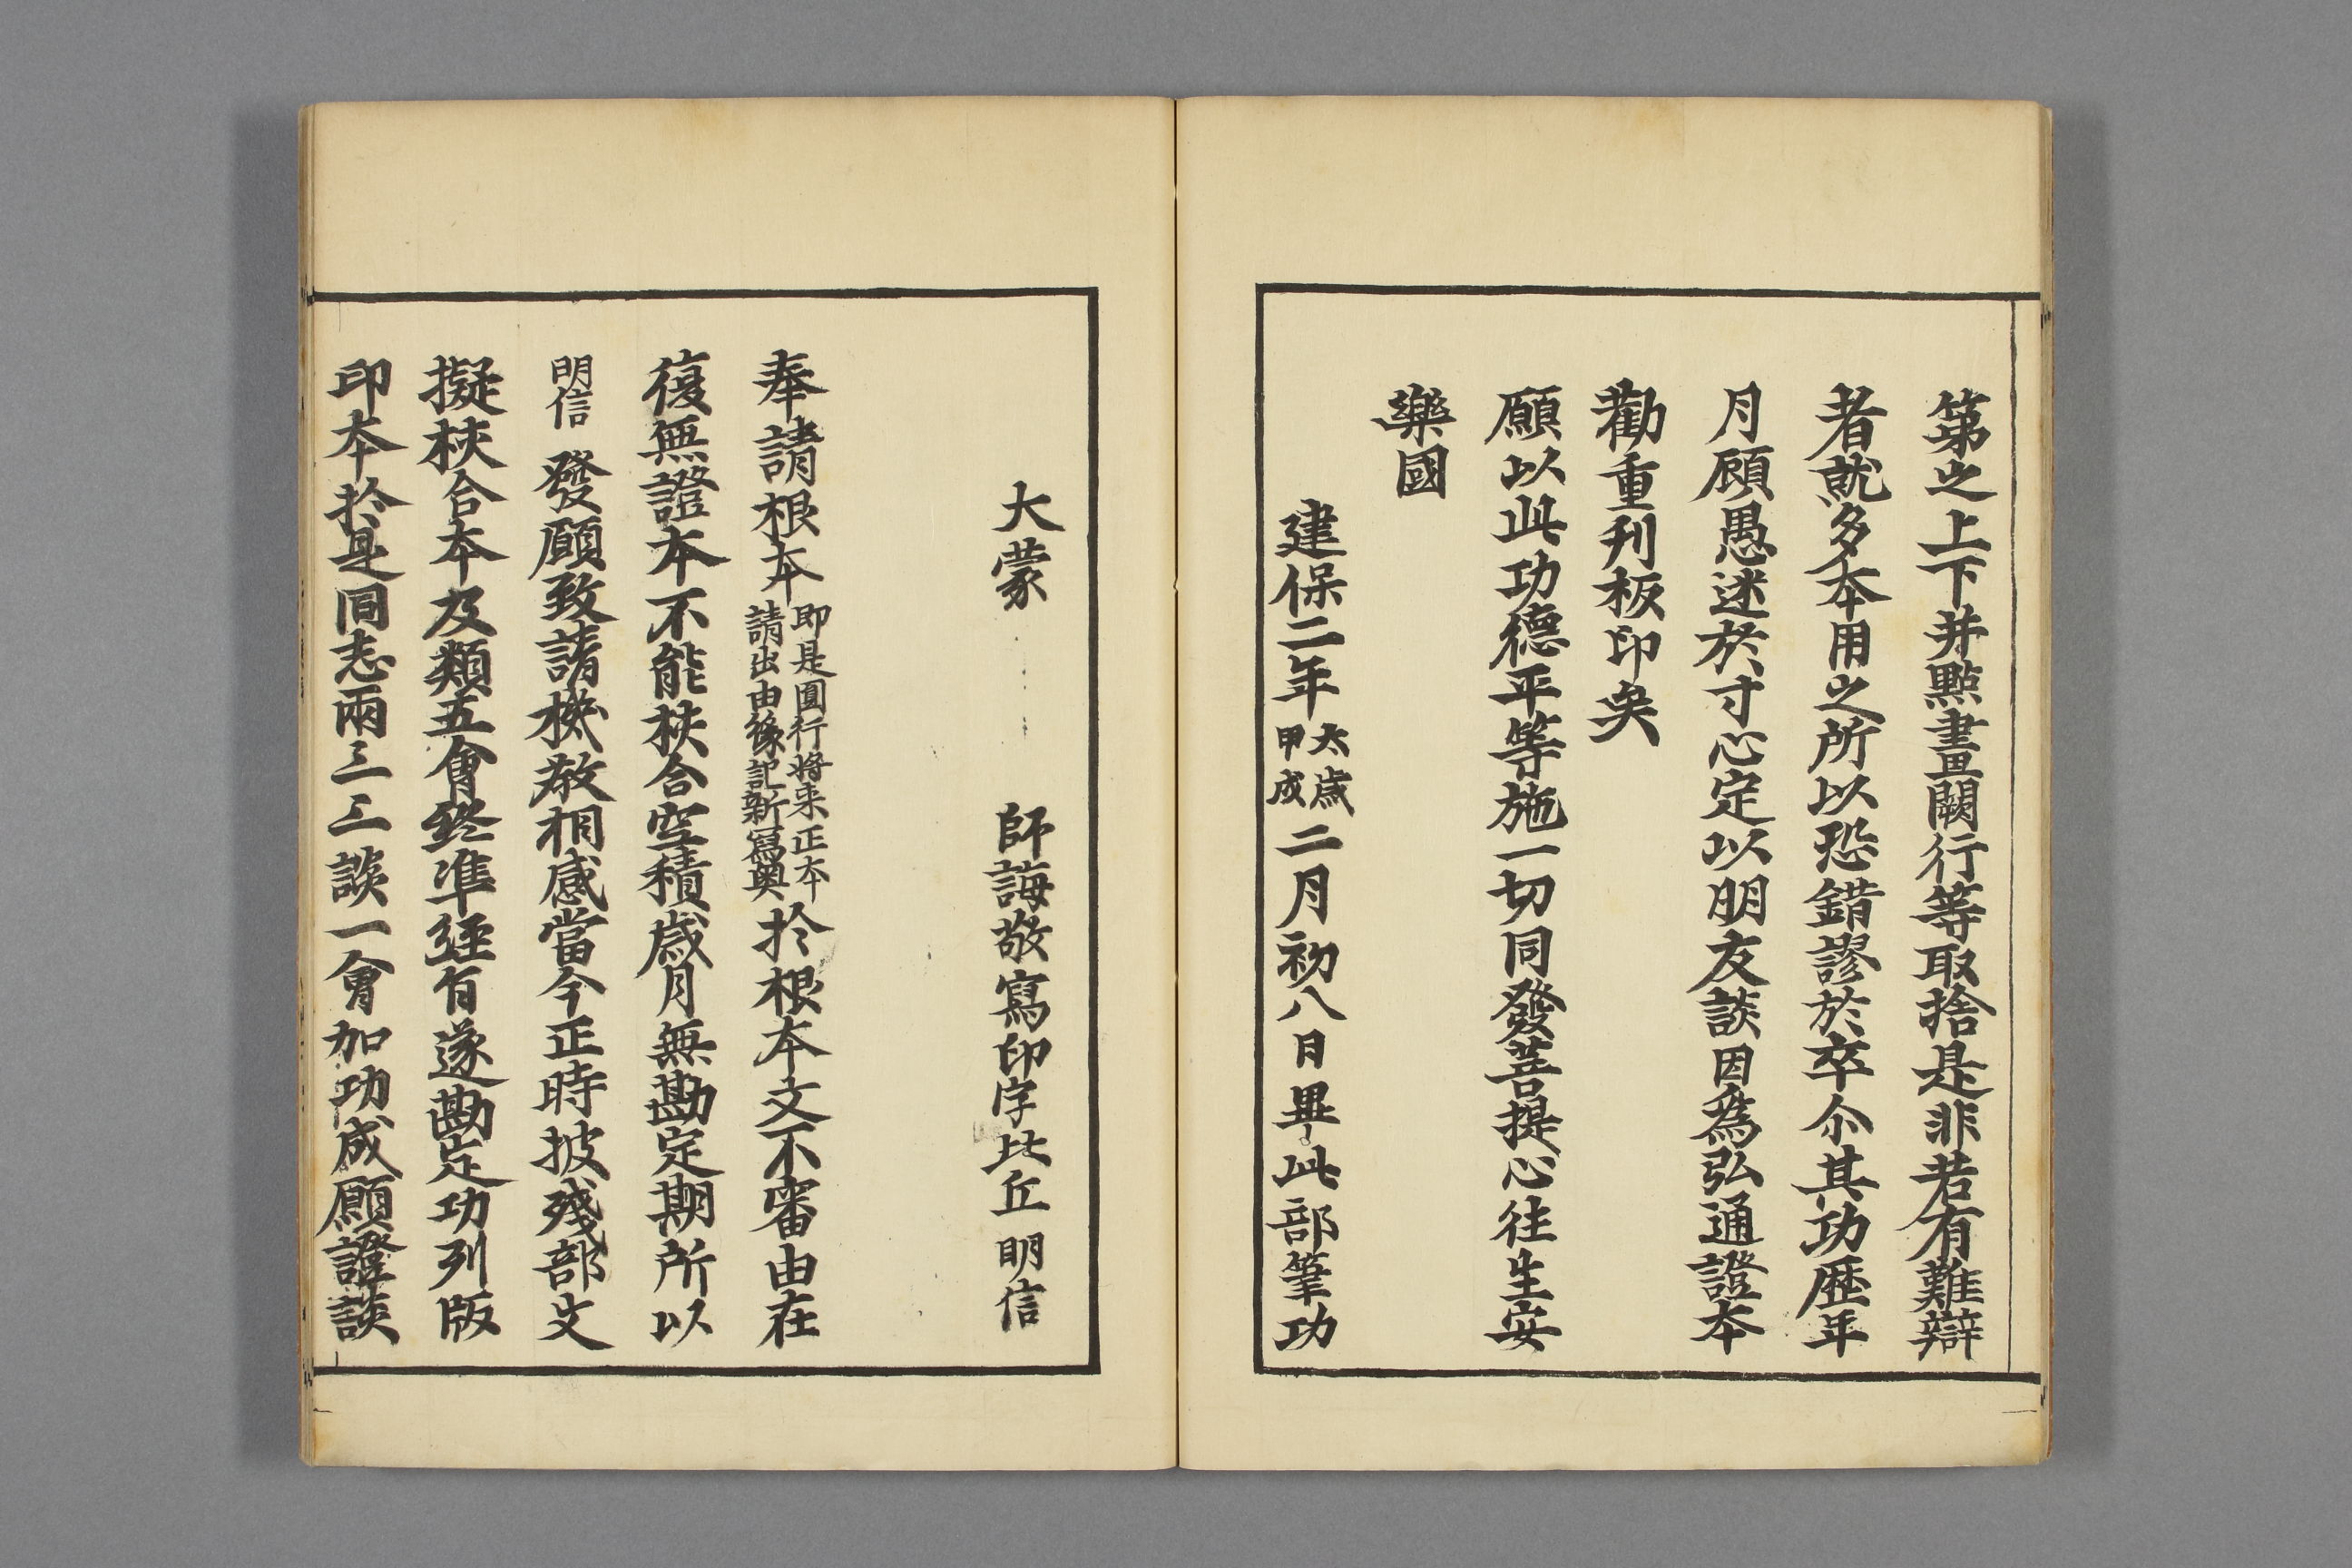 第之上下并點畫闕行等取捨是非若有難辯
者就多本用之所以恐錯謬於卒尒其功歴年
月顧愚迷於寸心定以朋友談因為弘通證本
勸重刋板印矣
願以此功德平等施一切同發菩提心往生安
樂國
建保二年太歳甲戌二月初八日畢此部筆功
大蒙　師誨敬寫印字比丘明信
奉請根本即是圓行將来正本請出由緣記新寫奥於根本文不審由在
復無證本不能挍合空積歳月無勘定期所以
明信發願致請機教相感當今正時披殘部文
擬挍合本及類五會終準經旨遂勘定功列版
印本於是同志兩三三談一會加功成願證談